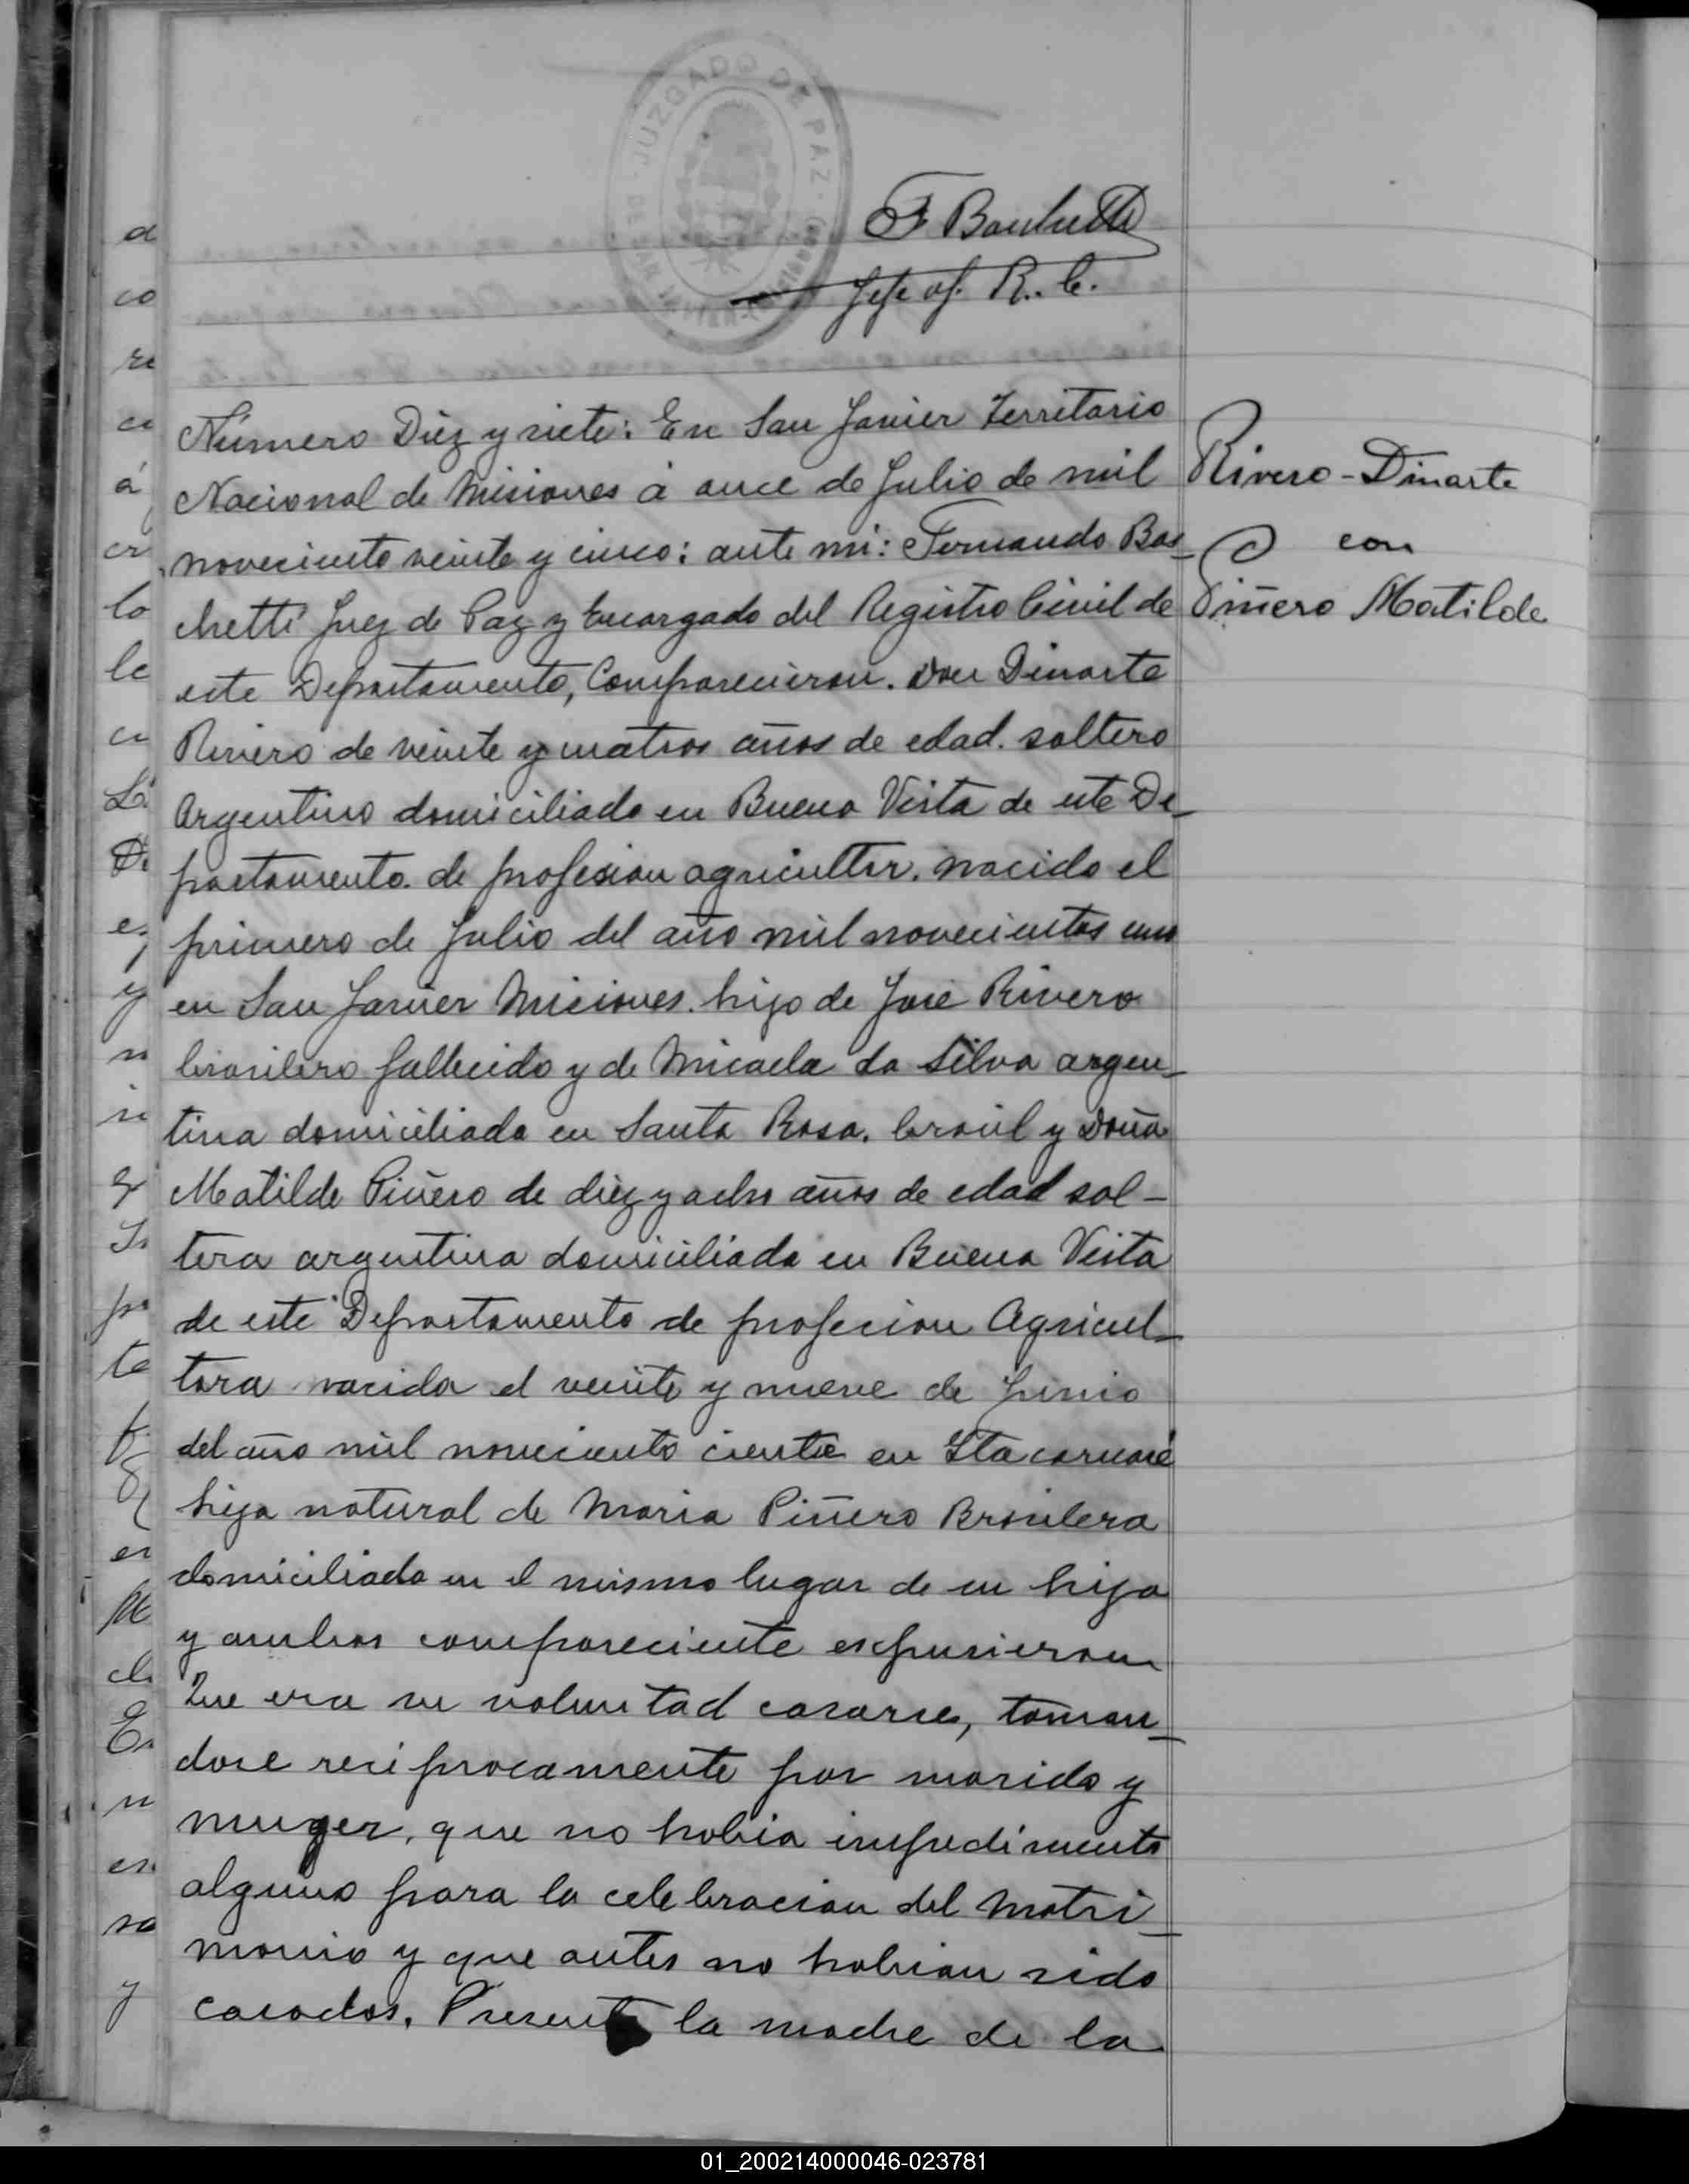 JUZGADO DE PAZ
F Bauchetti
Jefe of. R. C.
Número Diez y siete: En San Javier Territorio
Nacional de Misiones á once de Julio de mil
noveciento veinte y cinco: ante mi: Fernando Bos-
chetti Juez de Paz y Encargado del Registro Civil de
este Departamento, Comparecieron. Don Dinarte
Rivero de veinte y cuatros años de edad. soltero
Argentino domiciliado en Buena Vista de este De-
partamento. de profesion agricultor. nacido el
primero de Julio del año mil novecientos uno
en San Javier Misiones. hijo de José Rivero
brasilero fallecido y de Micaela da Silva argen-
tina domiciliada en Santa Rosa. brasil y Doña
Matilde Piñero de diez y ocho años de edad sol-
tera argentina domiciliada en Buena Vista
de este Departamento de profecion Agricul-
tora nacida el veinte y nueve de Junio
del año mil noveciento en Itacaruaré
hija natural de Maria Piñero Brasilera
domiciliada en el mismo lugar de su hija
y ambos compareciente expusieron
Que era su voluntad casarse, toman-
dose reciprocamente por marido y
muger, que no habia impedimento
alguno para la celebracion del Matri-
monio y que antes no habian sido
casados. Presente la madre de la
Rivero - Dinarte
con
Piñero Matilde
01_200214000046-023781